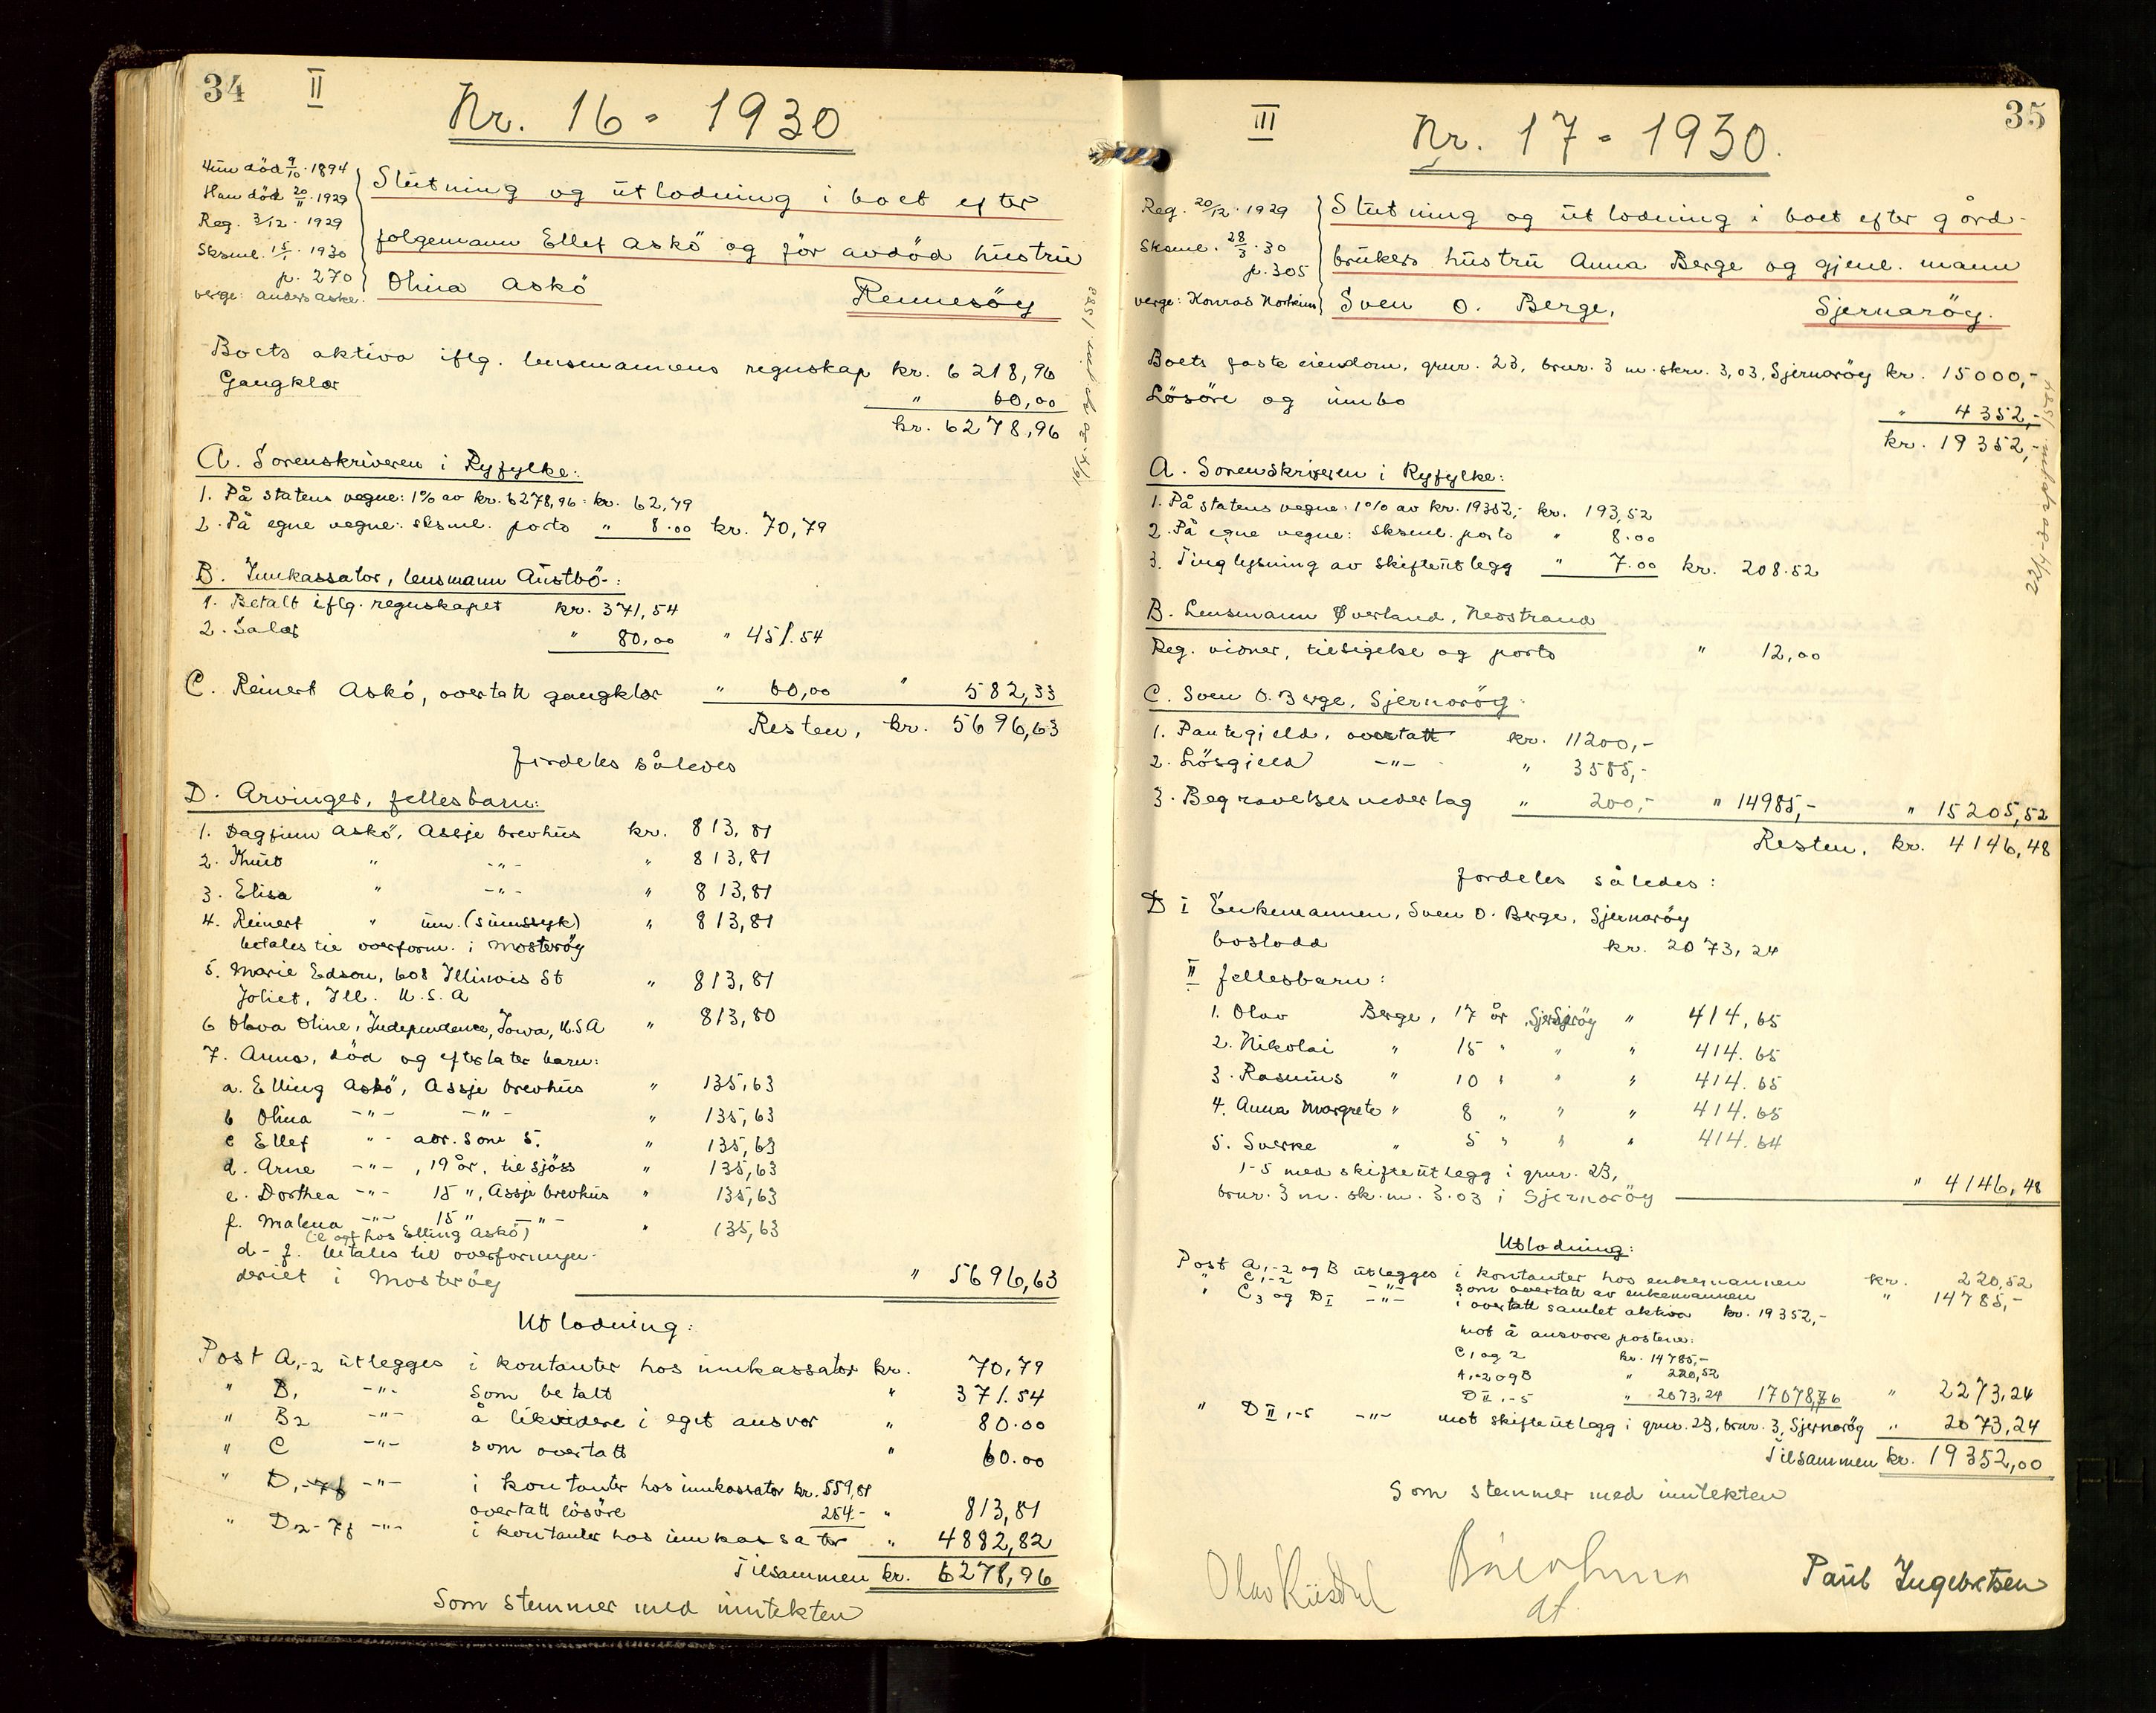 34 II
Nr. 16 - 1930
Hun död 9/10 · 1894
Han död 20/11 · 1929
Reg. 3/12 · 1929
Sksml. 15/1 · 1930
p. 270
verge: Anders Aske.
Slutning og utlodning i boet efter
folgemann Ellef Askö og för avdöd hustru
Olina Askö Rennesöy
Boets aktiva iflg. lensmannens regnskap kr. 6218,96
Gangklær " 60,00
kr. 6278,96
A. Sorenskriveren i Ryfylke:
1. På statens vegne: 1% av kr. 6278,96 = kr. 62,79
2. På egne vegne: sksml. porto " 8.00 kr. 70,79
B. Innkassator, lensmann Austbö-:
1. Betalt iflg. regnskapet kr. 371,54
2. Salær " 80,00 " 451.54
C. Reinert Askö, overtatt gangklær " 60,00 " 582,33
Resten, kr. 5696,63
fordeles således
D. Arvinger, fellesbarn:
1. Dagfinn Askö, Assje brevhus kr. 813,81
2. Knut " -"- " 813,81
3. Elisa " -"- " 813,81
4. Reinert " um. (sinnssyk) " 813,81
betales til overform. i Mosteröy
5. Marie Edson, 608 Illinois St " 813,81
Joliet, Ill. U.S.A
6 Olava Oline, Independence, Iowa, U.S.A " 813,80
7. Anna, död og efterlater barn:
a. Elling Askö, Assje brevhus " 135,63
b Olina -"- -"- " 135,63
c Ellef "- adr. som 5. " 135,63
d. Arne -"- , 19 år, til sjöss " 135,63
e. Dorthea -"- 15 ", Assje brevhus " 135,63
f. Malena -"- 15 " -"- " 135,63
(e og f hos Elling Askö)
d-f. betales til overformyn-
deriet i Mosteröy " 5696,63
Utlodning:
Post A,-2 utlegges i kontanter hos innkassator kr. 70,79
" B, -"- som betalt " 371.54
" B2 -"- å likvidere i eget ansvar " 80.00
" C -"- som overtatt " 60.00
" D, -"- i kontanter hos innkassator kr. 559,81
overtatt lösöre 254.- " 813,81
" D2-7f -"- i kontanter hos innkassator " 4882,82
Tilsammen kr. 6278,96
Som stemmer med inntekten
35
III
Nr. 17 - 1930.
Reg. 20/12 · 1929
Sksml. 28/3 · 30
p. 305
verge: Konrad Norheim
Slutning og utlodning i boet efter gård-
brukers hustru Anna Berge og gjenl. mann
Sven O. Berge, Sjernaröy.
Boets faste eiendom, gnr. 23, bnr. 3 m. skm. 3,03, Sjernaröy kr. 15000,-
Lösöre og innbo " 4352,-
kr. 19352,-
A. Sorenskriveren i Ryfylke:
1. På statens vegne: 1% av kr. 19352,- kr. 193,52
2. På egne vegne: sksml. porto " 8.00
3. Tinglysning av skifteutlegg " 7.00 kr. 208.52
B. Lensmann Øverland, Nedstrand
Reg. vidner, tilsigelse og porto " 12,00
C. Sven O. Berge, Sjernaröy:
1. Pantegjeld, overtatt kr. 11200,-
2. Lösgjeld -"- " 3585,-
3. Begravelsesvederlag " 200,- " 14985,- " 15205,52
Resten, kr. 4146,48
fordeles således:
D I Enkemannen, Sven O. Berge, Sjernaröy
boslodd kr. 2073,24
II fellesbarn:
1. Olav Berge, 17 år, Sjernaröy " 414,65
2. Nikolai " 15 " " " 414.65
3. Rasmus " 10 " " " 414.65
4. Anna Margrete " 8 " " " 414.65
5. Sverke " 5 " " " 414.64
1-5 med skifteutlegg i gnr. 23,
bnr. 3 m. sk.m. 3.03 i Sjernaröy " 4146,48
Utlodning:
Post A,-2 og B utlegges i kontanter hos enkemannen kr. 220,52
" C,-2 -"- som overtatt av enkemannen " 14785,-
" C3 og DI -"- i overtatt samlet aktiva kr. 19352,-
mot å ansvare postene:
C 1 og 2 kr. 14785,-
A,-2 og B " 220,52
D II,-5 " 2073,24 17078,76 " 2273,24
" D II,-5 -"- mot skifteutlegg i gnr. 23, bnr. 3, Sjernaröy " 2073,24
Tilsammen kr. 19352,00
Som stemmer med inntekten
Paul Ingebretsen